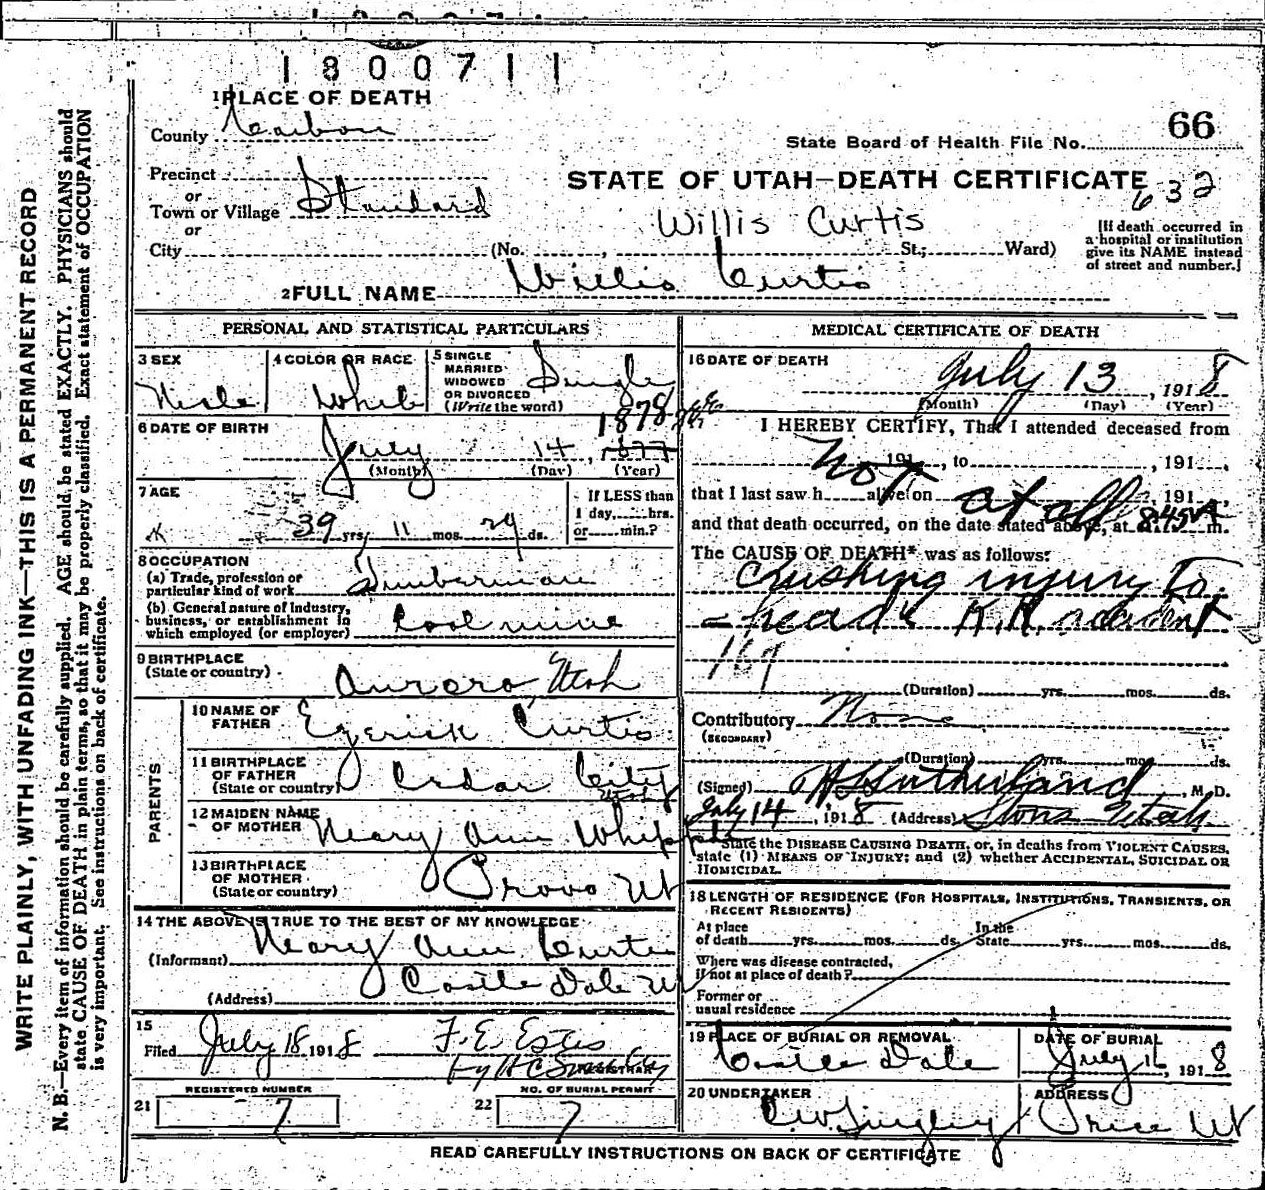 1800711
1 PLACE OF DEATH
County Carbon
State Board of Health File No. 66
Precinct
or
Town or Village Standard
or
STATE OF UTAH—DEATH CERTIFICATE 632
Willis Curtis
City (No. , St.; Ward)
[If death occurred in
a hospital or institution
give its NAME instead
of street and number.]
2 FULL NAME Willis Curtis
PERSONAL AND STATISTICAL PARTICULARS
3 SEX
Male
4 COLOR OR RACE
White
5 SINGLE
MARRIED
WIDOWED
OR DIVORCED
(Write the word)
Single
6 DATE OF BIRTH
1878
July 14, 1877
(Month) (Day) (Year)
7 AGE
39 yrs. 11 mos. 29 ds.
If LESS than
1 day, hrs.
or min.?
8 OCCUPATION
(a) Trade, profession or
particular kind of work Timberman
(b) General nature of Industry,
business, or establishment in
which employed (or employer) Coal mine
9 BIRTHPLACE
(State or country)
Aurora, Utah
PARENTS
10 NAME OF
FATHER
Ezerick Curtis
11 BIRTHPLACE
OF FATHER
(State or country)
Cedar City
Utah
12 MAIDEN NAME
OF MOTHER
Mary Ann Whipple
13 BIRTHPLACE
OF MOTHER
(State or country)
Provo Ut
14 THE ABOVE IS TRUE TO THE BEST OF MY KNOWLEDGE
(Informant) Mary Ann Curtis
(Address) Castle Dale Ut
15
Filed July 18 1918 F. E. Estis
REGISTRAR
REGISTERED NUMBER
21 7
NO. OF BURIAL PERMIT
22 7
MEDICAL CERTIFICATE OF DEATH
16 DATE OF DEATH
July 13, 1918
(Month) (Day) (Year)
I HEREBY CERTIFY, That I attended deceased from
Not 191 , to , 191 ,
that I last saw h alive on at all, 191 ,
and that death occurred, on the date stated above, at 8:45 A m.
The CAUSE OF DEATH* was as follows:
Crushing injury to
head R.R. accident
167
(Duration) yrs. mos. ds.
Contributory None
(SECONDARY)
(Duration) yrs. mos. ds.
(Signed) Sutherland, M.D.
July 14, 1918 (Address) Stons Utah
State the DISEASE CAUSING DEATH, or, in deaths from VIOLENT CAUSES,
state (1) MEANS OF INJURY; and (2) whether ACCIDENTAL, SUICIDAL OR
HOMICIDAL.
18 LENGTH OF RESIDENCE (FOR HOSPITALS, INSTITUTIONS, TRANSIENTS, OR
RECENT RESIDENTS)
At place
of death yrs. mos. ds.
In the
State yrs. mos. ds.
Where was disease contracted,
if not at place of death?
Former or
usual residence
19 PLACE OF BURIAL OR REMOVAL
Castle Dale
DATE OF BURIAL
July 16, 1918
20 UNDERTAKER
C.W. Lingley
ADDRESS
Price Ut
READ CAREFULLY INSTRUCTIONS ON BACK OF CERTIFICATE
WRITE PLAINLY, WITH UNFADING INK—THIS IS A PERMANENT RECORD
N. B.—Every item of information should be carefully supplied. AGE should be stated EXACTLY. PHYSICIANS should
state CAUSE OF DEATH in plain terms, so that it may be properly classified. Exact statement of OCCUPATION
is very important. See instructions on back of certificate.